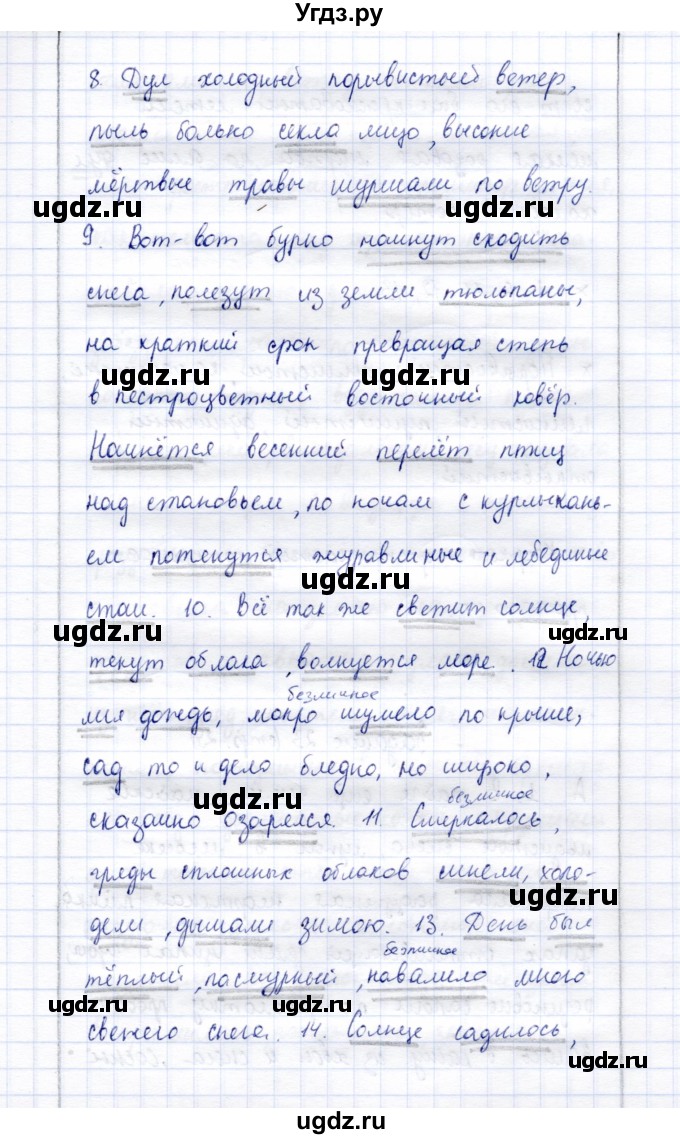 Угдз.ру
8. Дул холодный порывистый ветер,
пыль больно секла лицо, высокие
мёртвые травы шуршали по ветру.
ugdz.ru ugdz.ru
9. Вот-вот бурно начнут сходить
снега, полезут из земли тюльпаны,
ugdz.ru
на краткий срок превращая степь
ugdz.ru
в пестроцветный восточный ковёр.
Начнётся весенний перелёт птиц
ugdz.ru
над становьем, по ночам с курлыкань-
ем потянутся журавлиные и лебединые
ugdz.ru
стаи. 10. Всё так же светит солнце,
ugdz.ru ugdz.ru
текут облака, волнуется море. 12. Ночью
безличное
лил дождь, мокро шумело по крыше,
сад то и дело бледно, но широко,
ugdz.ru безличное
сказочно озарялся. 11. Смеркалось,
гряды сплошных облаков синели, холо-
ugdz.ru
дели, дышали зимою. 13. День был
безличное
тёплый, пасмурный, навалило много
ugdz.ru ugdz.ru
свежего снега. 14. Солнце садилось,
ugdz.ru